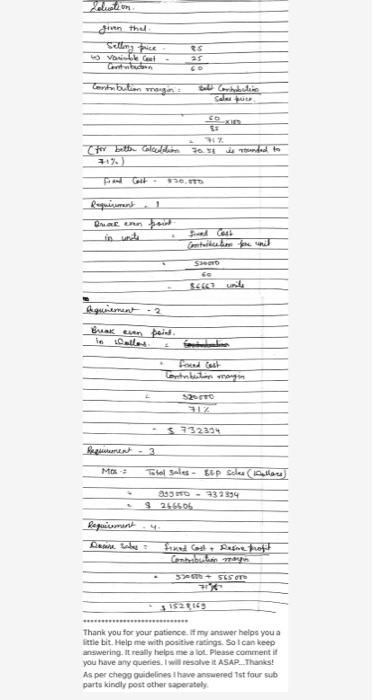 Solution.
given that.
Selling price - 85
(-) Variable Cost - 25
Contribution 60
Contribution margin = Contribution
Sales price.
60 x100
85
= 71%
(for better Calculation 70.58 is rounded to
71%)
Fixed Cost - 520,000
Requirement - 1
Break even point
in units = Fixed Cost
Contribution per unit
= 520000
60
= 86667 units
Requirement - 2
Break even point.
in Dollars. =
= Fixed Cost
Contribution margin
= 520000
71%
= $ 732394
Requirement - 3
Mos = Total Sales - BEP Sales (Dollars)
- 732394
= $ 266606
Requirement - 4.
Desire Sales = Fixed Cost + Desire profit
Contribution margin
= 520000 + 565000
71%
= $ 1528169
******************************
Thank you for your patience. If my answer helps you a
little bit. Help me with positive ratings. So I can keep
answering. It really helps me a lot. Please comment if
you have any queries. I will resolve it ASAP...Thanks!
As per chegg guidelines I have answered 1st four sub
parts kindly post other saperately.